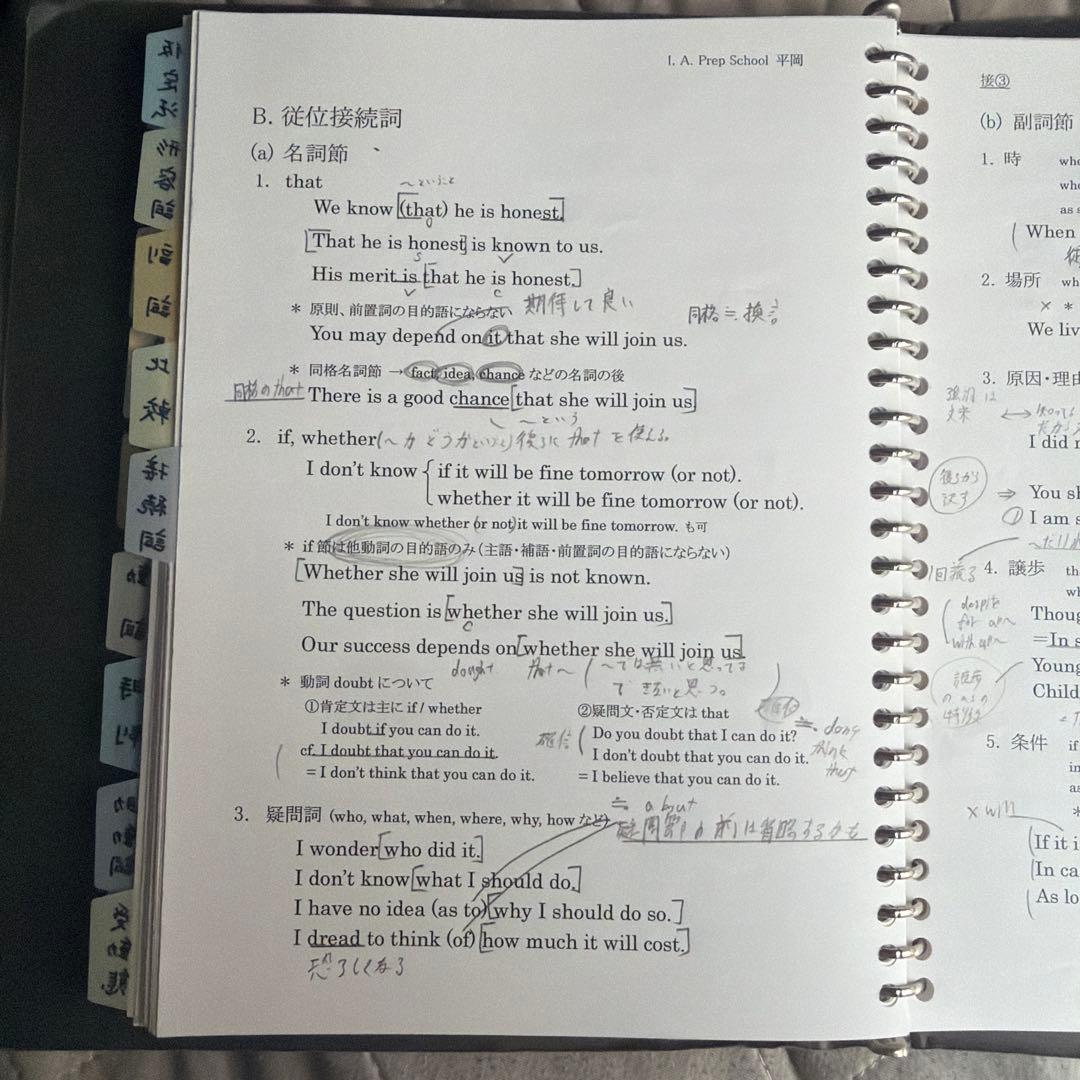 I. A. Prep School 平岡
B. 従位接続詞
(a) 名詞節
1. that
〜ということ
We know (that) he is honest.
o
That he is honest is known to us.
s v
His merit is that he is honest.
v c
* 原則、前置詞の目的語にならない 期待して良い
同格≒換言
You may depend on it that she will join us.
* 同格名詞節 → fact, idea, chance などの名詞の後
同格のthat There is a good chance that she will join us
〜という
2. if, whether (〜かどうかということ) 後ろに that を使える。
I don't know if it will be fine tomorrow (or not).
whether it will be fine tomorrow (or not).
I don't know whether (or not) it will be fine tomorrow. も可
* if 節は他動詞の目的語のみ (主語・補語・前置詞の目的語にならない)
Whether she will join us is not known.
The question is whether she will join us.
c
Our success depends on whether she will join us.
that〜 (〜では無いと思って
* 動詞 doubt について
①肯定文は主に if / whether
I doubt if you can do it.
cf. I doubt that you can do it.
= I don't think that you can do it.
②疑問文・否定文は that
確信
Do you doubt that I can do it?
I don't doubt that you can do it.
= I believe that you can do it.
think
3. 疑問詞 (who, what, when, where, why, how など)
≒ about
I wonder who did it.
I don't know what I should do.
I have no idea (as to) why I should do so.
I dread to think (of) how much it will cost.
恐ろしくなる
接③
(b) 副詞節
1. 時 whe
whe
as s
When
2. 場所 wh
× *
We liv
3. 原因・理由
強調は
文末
I did n
後ろから
訳す
⇒ You sh
① I am s
〜だけれ
4. 譲歩 th
wh
despite
for all〜
with all〜
Thoug
=In s
Young
Child
譲歩
のasの
特徴
5. 条件 if
in
as
× will *
If it i
In ca
As lo
仮定法
形容詞
副詞
比較
接続詞
時制
受動態